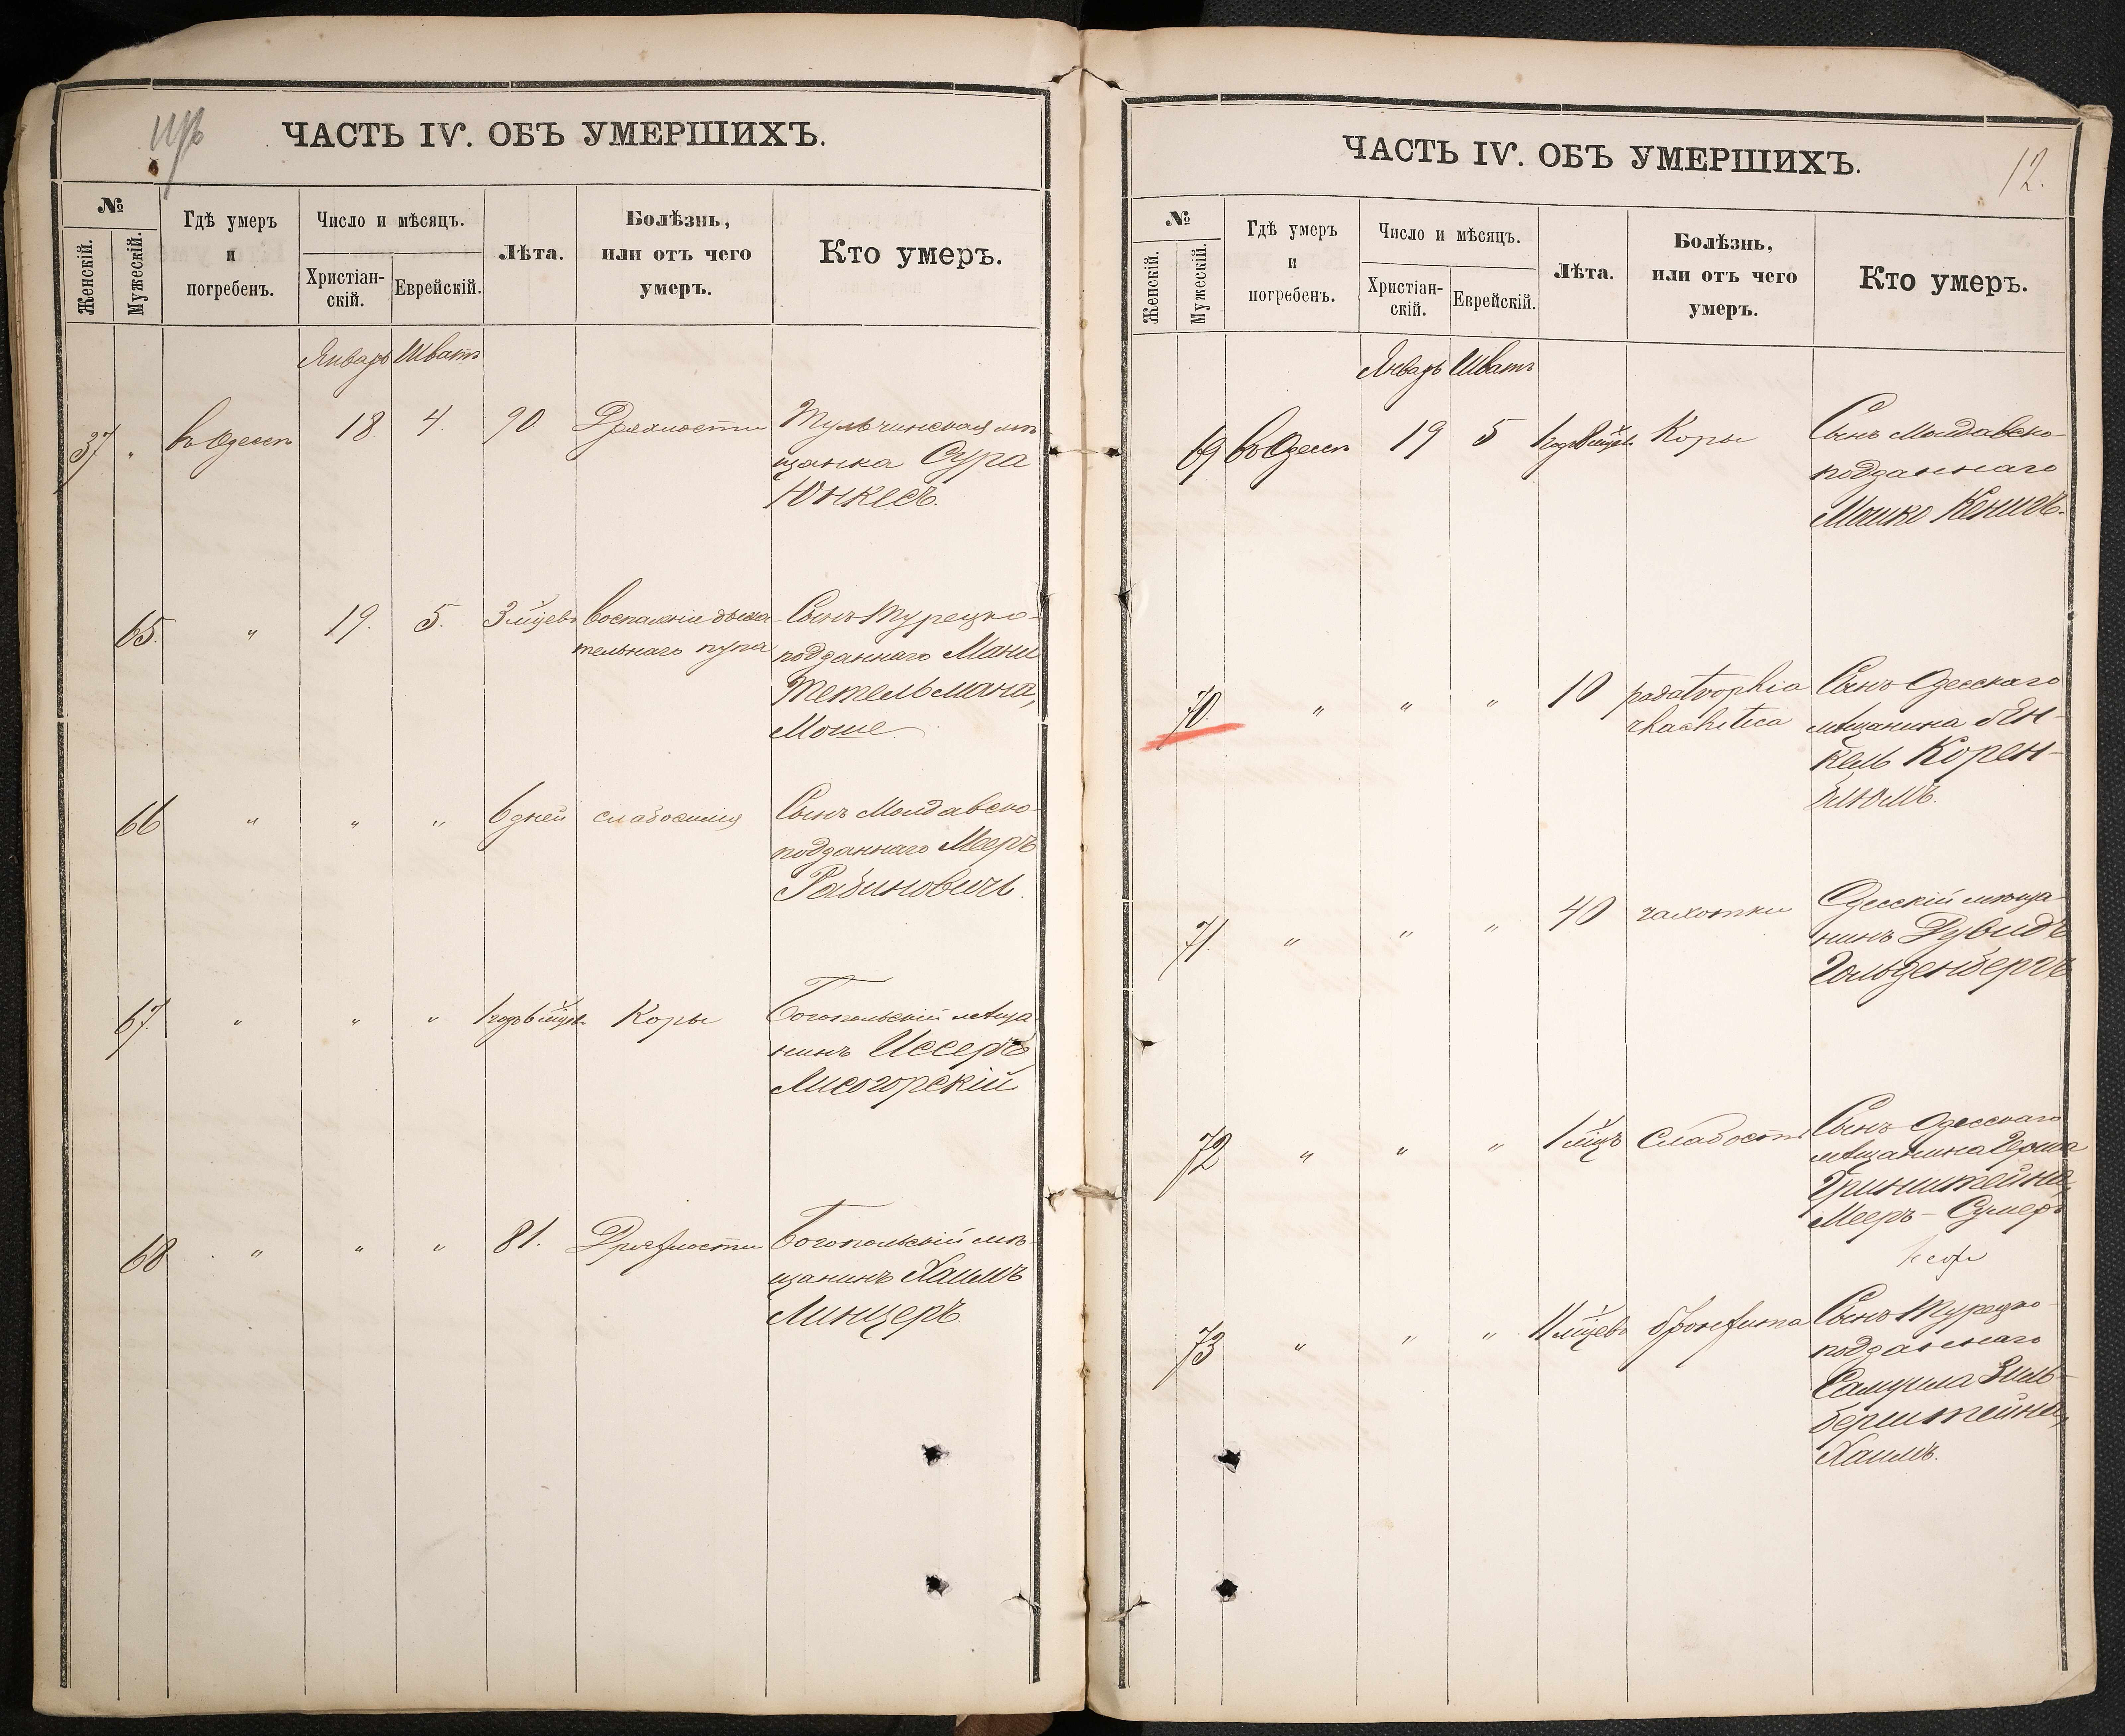 ЧАСТЬ IV. ОБЪ УМЕРШИХЪ.
№
Женскій.
Мужескій.
Гдѣ умеръ
и
погребенъ.
Число и мѣсяцъ.
Христіан-
скій.
Еврейскій.
Лѣта.
Болѣзнь,
или отъ чего
умеръ.
Кто умеръ.
Январь Шватъ
37 " въ Одессѣ 18 4. 90 Дряхлости Тульчинская мѣ-
щанка Сура
Юнкесъ.
65. " 19. 5. 3 мѣсяцевъ воспаленіи дыха- Сынъ Турецко-
тельнаго пути подданнаго Мани
Тетельмана,
Моше
66 " " " 6 дней слабосилія Сынъ Молдавско-
подданнаго Мееръ
Рабиновичъ.
67. " " " 1 годъ 6 мѣсяц. Коры Богопольскій мѣща-
нинъ Иссеръ
Лисогорскій
68 " " " 81. Дряхлости Богопольскій мѣ-
щанинъ Хаимъ
Линцеръ.
ЧАСТЬ IV. ОБЪ УМЕРШИХЪ.
12.
№
Женскій.
Мужескій.
Гдѣ умеръ
и
погребенъ.
Число и мѣсяцъ.
Христіан-
скій.
Еврейскій.
Лѣта.
Болѣзнь,
или отъ чего
умеръ.
Кто умеръ.
Январь Шватъ
69 въ Одессѣ 19 5 1 годъ 8 мѣсяц. Коры Сынъ Молдавско-
подданнаго
Мошко Кенигъ.
70. " " " 10 padatrophia Сынъ Одесскаго
rhachitica мѣщанина Ян-
кель Корен-
блюмъ.
71. " " " 40 чахотки Одесскій мѣща-
нинъ Дувидъ
Гольденбергъ
72 " " " 1 мѣц. Слабости Сынъ Одесскаго
мѣщанина Герша
Гринштейна,
Мееръ-Сумеръ
73 " " " 11 мѣсяцевъ бронхита Сынъ Турецко-
подданнаго
Самуила Зиль-
берштейна,
Хаимъ.